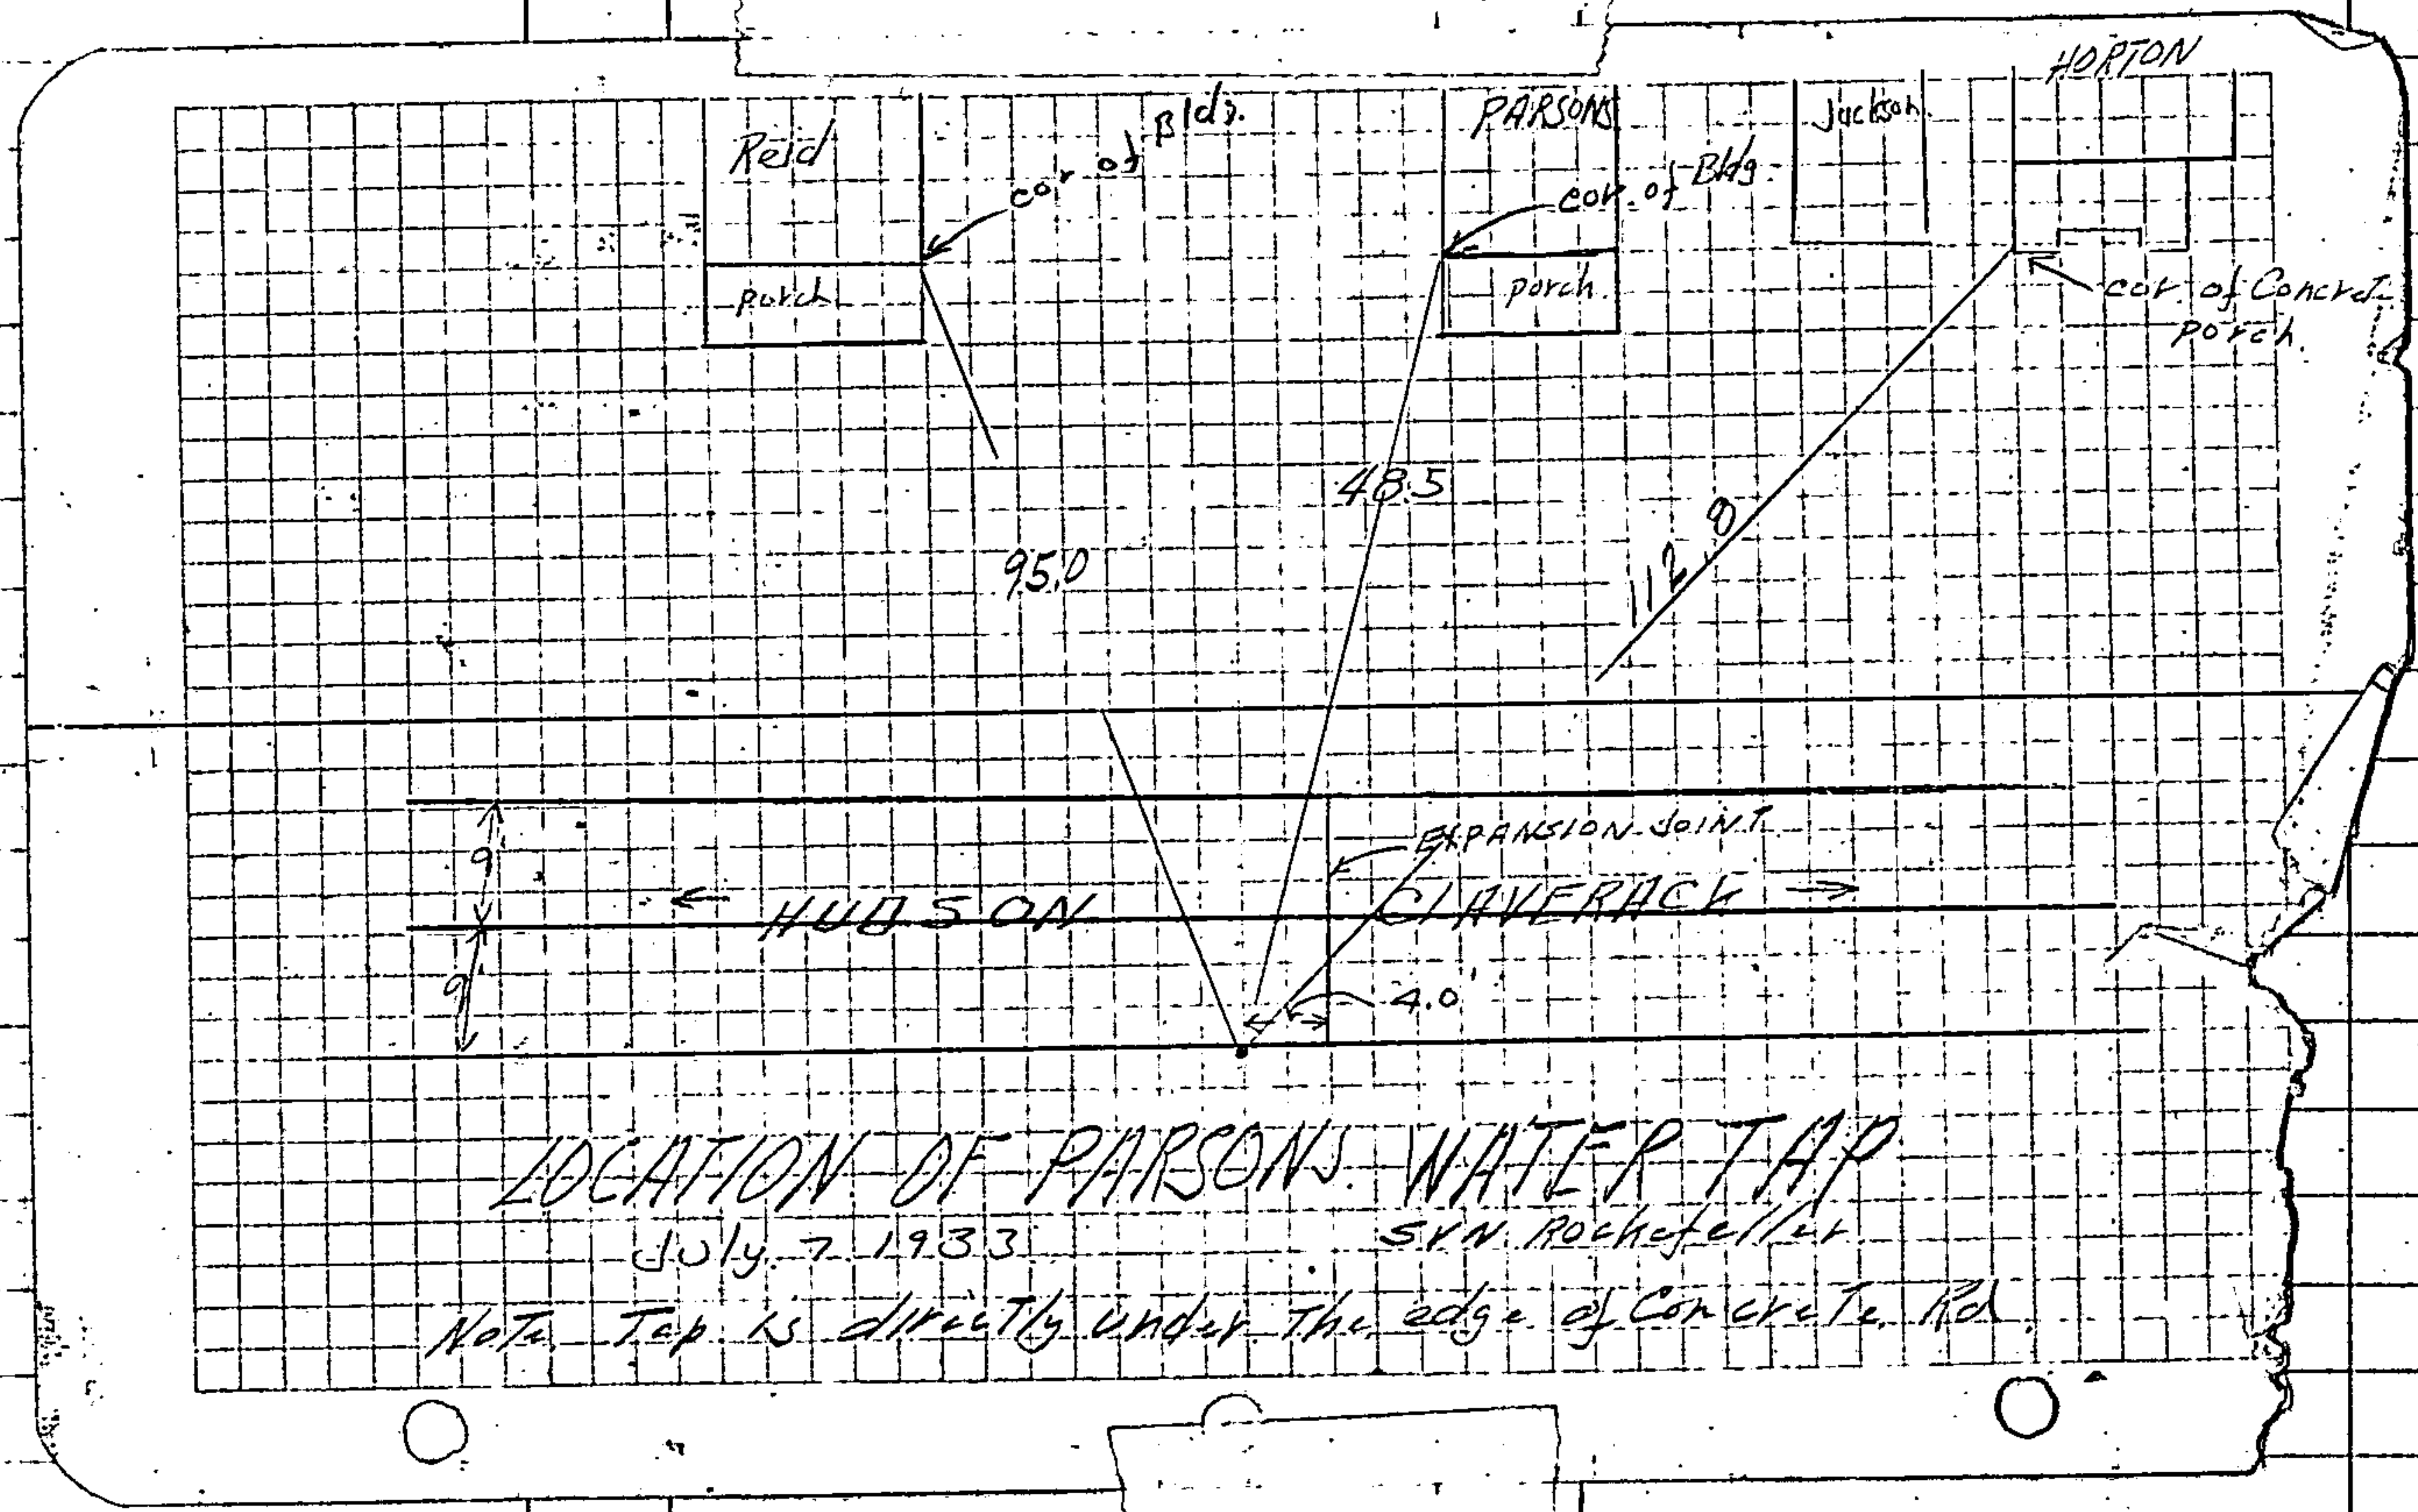 HORTON
Reid
cor of Bldg.
PARSONS
cor. of Bldg.
Jackson
porch
porch.
cor. of Concrete
porch.
48.5
95.0
112.8
EXPANSION JOINT
9
← HUDSON
CLAVERACK →
9
4.0
LOCATION OF PARSONS. WATER TAP
July 7 1933
Rockefeller
Note Tap is directly under the edge of Concrete Rd.